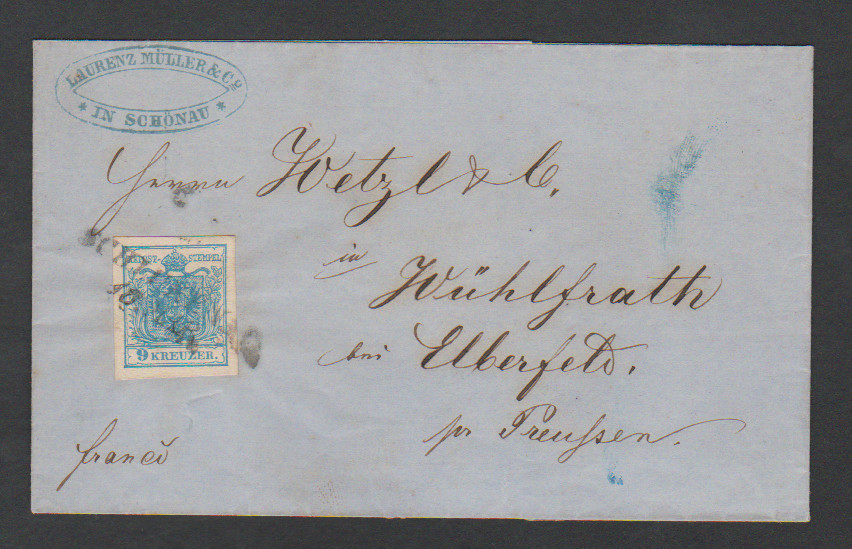 LAURENZ MÜLLER & Co
* IN SCHÖNAU *
Herrn Wetzl & C.
in
Wühlfrath
bei Elberfeld.
pr Preußen.
STEMPEL
9 KREUZER.
franco